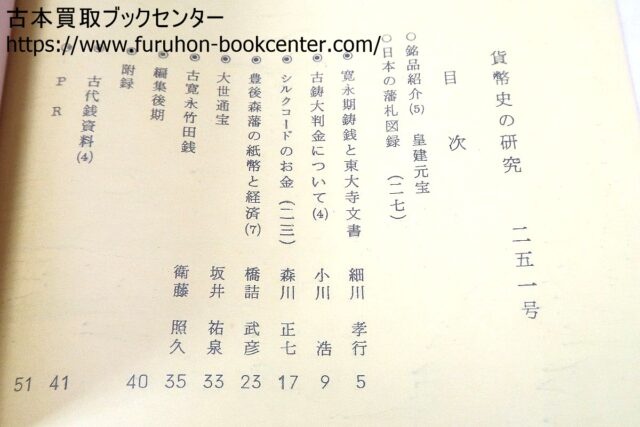 古本買取ブックセンター
https://www.furuhon-bookcenter.com/
貨幣史の研究 二五一号
目次
○銘品紹介(5) 皇建元宝
○日本の藩札図録 (二七)
◉ 寛永期鋳銭と東大寺文書 細川 孝行 5
◉ 古鋳大判金について(4) 小川 浩 9
◉ シルクコードのお金 (二三) 森川 正七 17
◉ 豊後森藩の紙幣と経済(7) 橋詰 武彦 23
◉ 大世通宝 坂井 祐泉 33
◉ 古寛永竹田銭 衛藤 照久 35
◉ 編集後期
◉ 附録 40
古代銭資料(4) 41
◉ PR 51